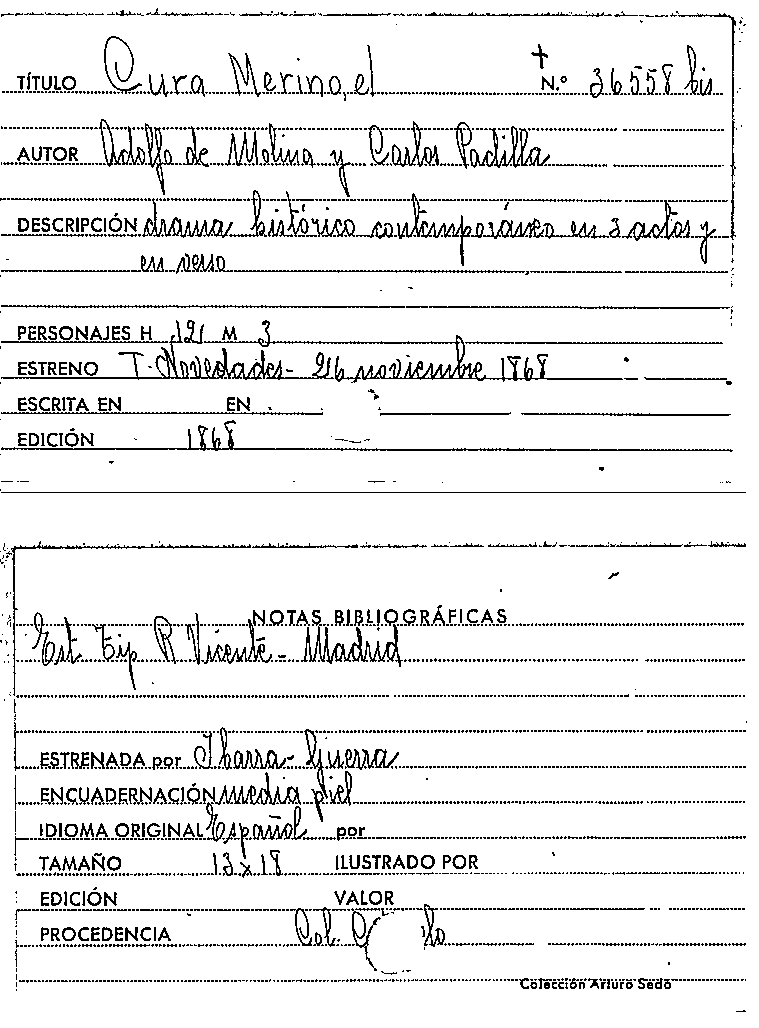 TÍTULO Cura Merino, el † N.º 36558 bis
AUTOR Adolfo de Molina y Carlos Padilla
DESCRIPCIÓN drama histórico contemporáneo en 3 actos y
en verso
PERSONAJES H 12 M 3
ESTRENO T. Novedades - 26 noviembre 1868
ESCRITA EN EN
EDICIÓN 1868
NOTAS BIBLIOGRÁFICAS
Est. Tip R. Vicente - Madrid
ESTRENADA por Ibarra - Guerra
ENCUADERNACIÓN media piel
IDIOMA ORIGINAL Español por
TAMAÑO 13 x 18 ILUSTRADO POR
EDICIÓN VALOR
PROCEDENCIA Col.
Colección Arturo Sedó